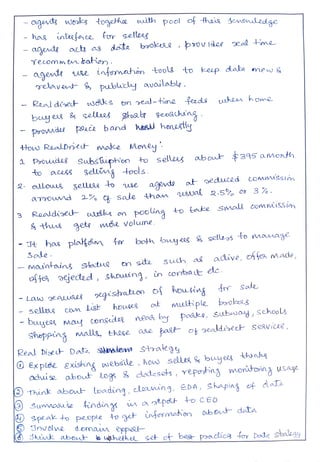 - agents works together with pool of their knowledge
- has interface for sellers
- agents acts as data brokers, provides real time
recommendation.
- agents use information tools to keep data new &
relavent & publicly available.
- Realdirect works on real-time feeds when home
buyers & sellers starts searching.
- provides price band honestly
How RealDirect make Money:
1. Provides subscuption to sellers about $395 a month
to acess selling tools.
2. allows sellers to use agents at reduced commission
arround 2% of sale than usual 2.5% or 3%.
3 Realdirect works on pooling to take small commission
& thus gets more volume.
- It has platform for both buyers & sellers to manage
sale.
- maintains status on site such as active, offer made,
offer rejected, showing, in contract etc.
- Law requires registration of housing for sale
- sellers can list houses at multiple brokers
- buyers may consider near by parks, subway, schools
shopping malls, these are part of realdirect service.
Real Direct Data Strategy
① Explore Existing website, how sellers & buyers
advise about logs & datasets, reporting monitoring usage
② Think about loading, cleaning, EDA, shaping of data
③ Summarise findings in a report to CEO
④ speak to people to get information about data
⑤ Involve domain expert
⑥ Think about whether set of best practice for Data strategy